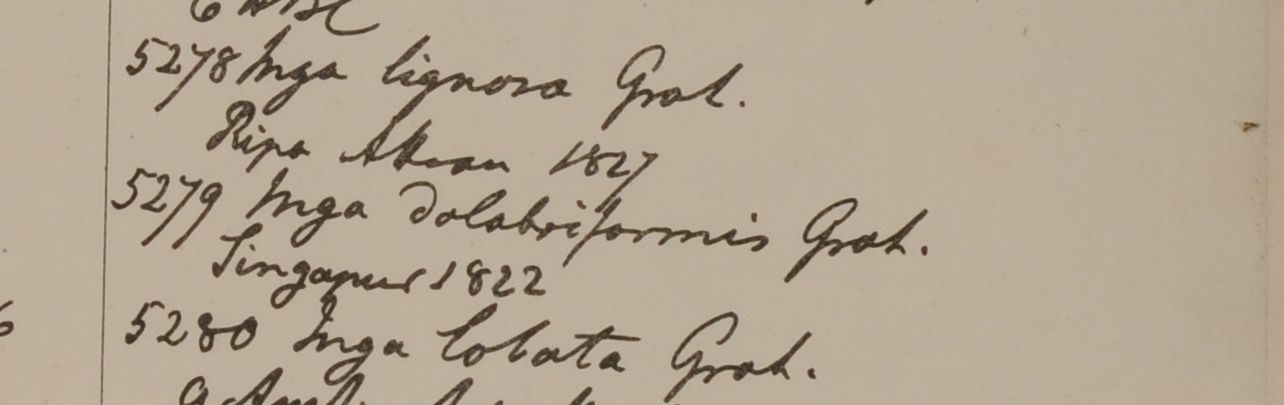 5278 Inga lignosa Grah.
Ripa Attran 1827
5279 Inga dolabriformis Grah.
Singapur 1822
5280 Inga lobata Grah.